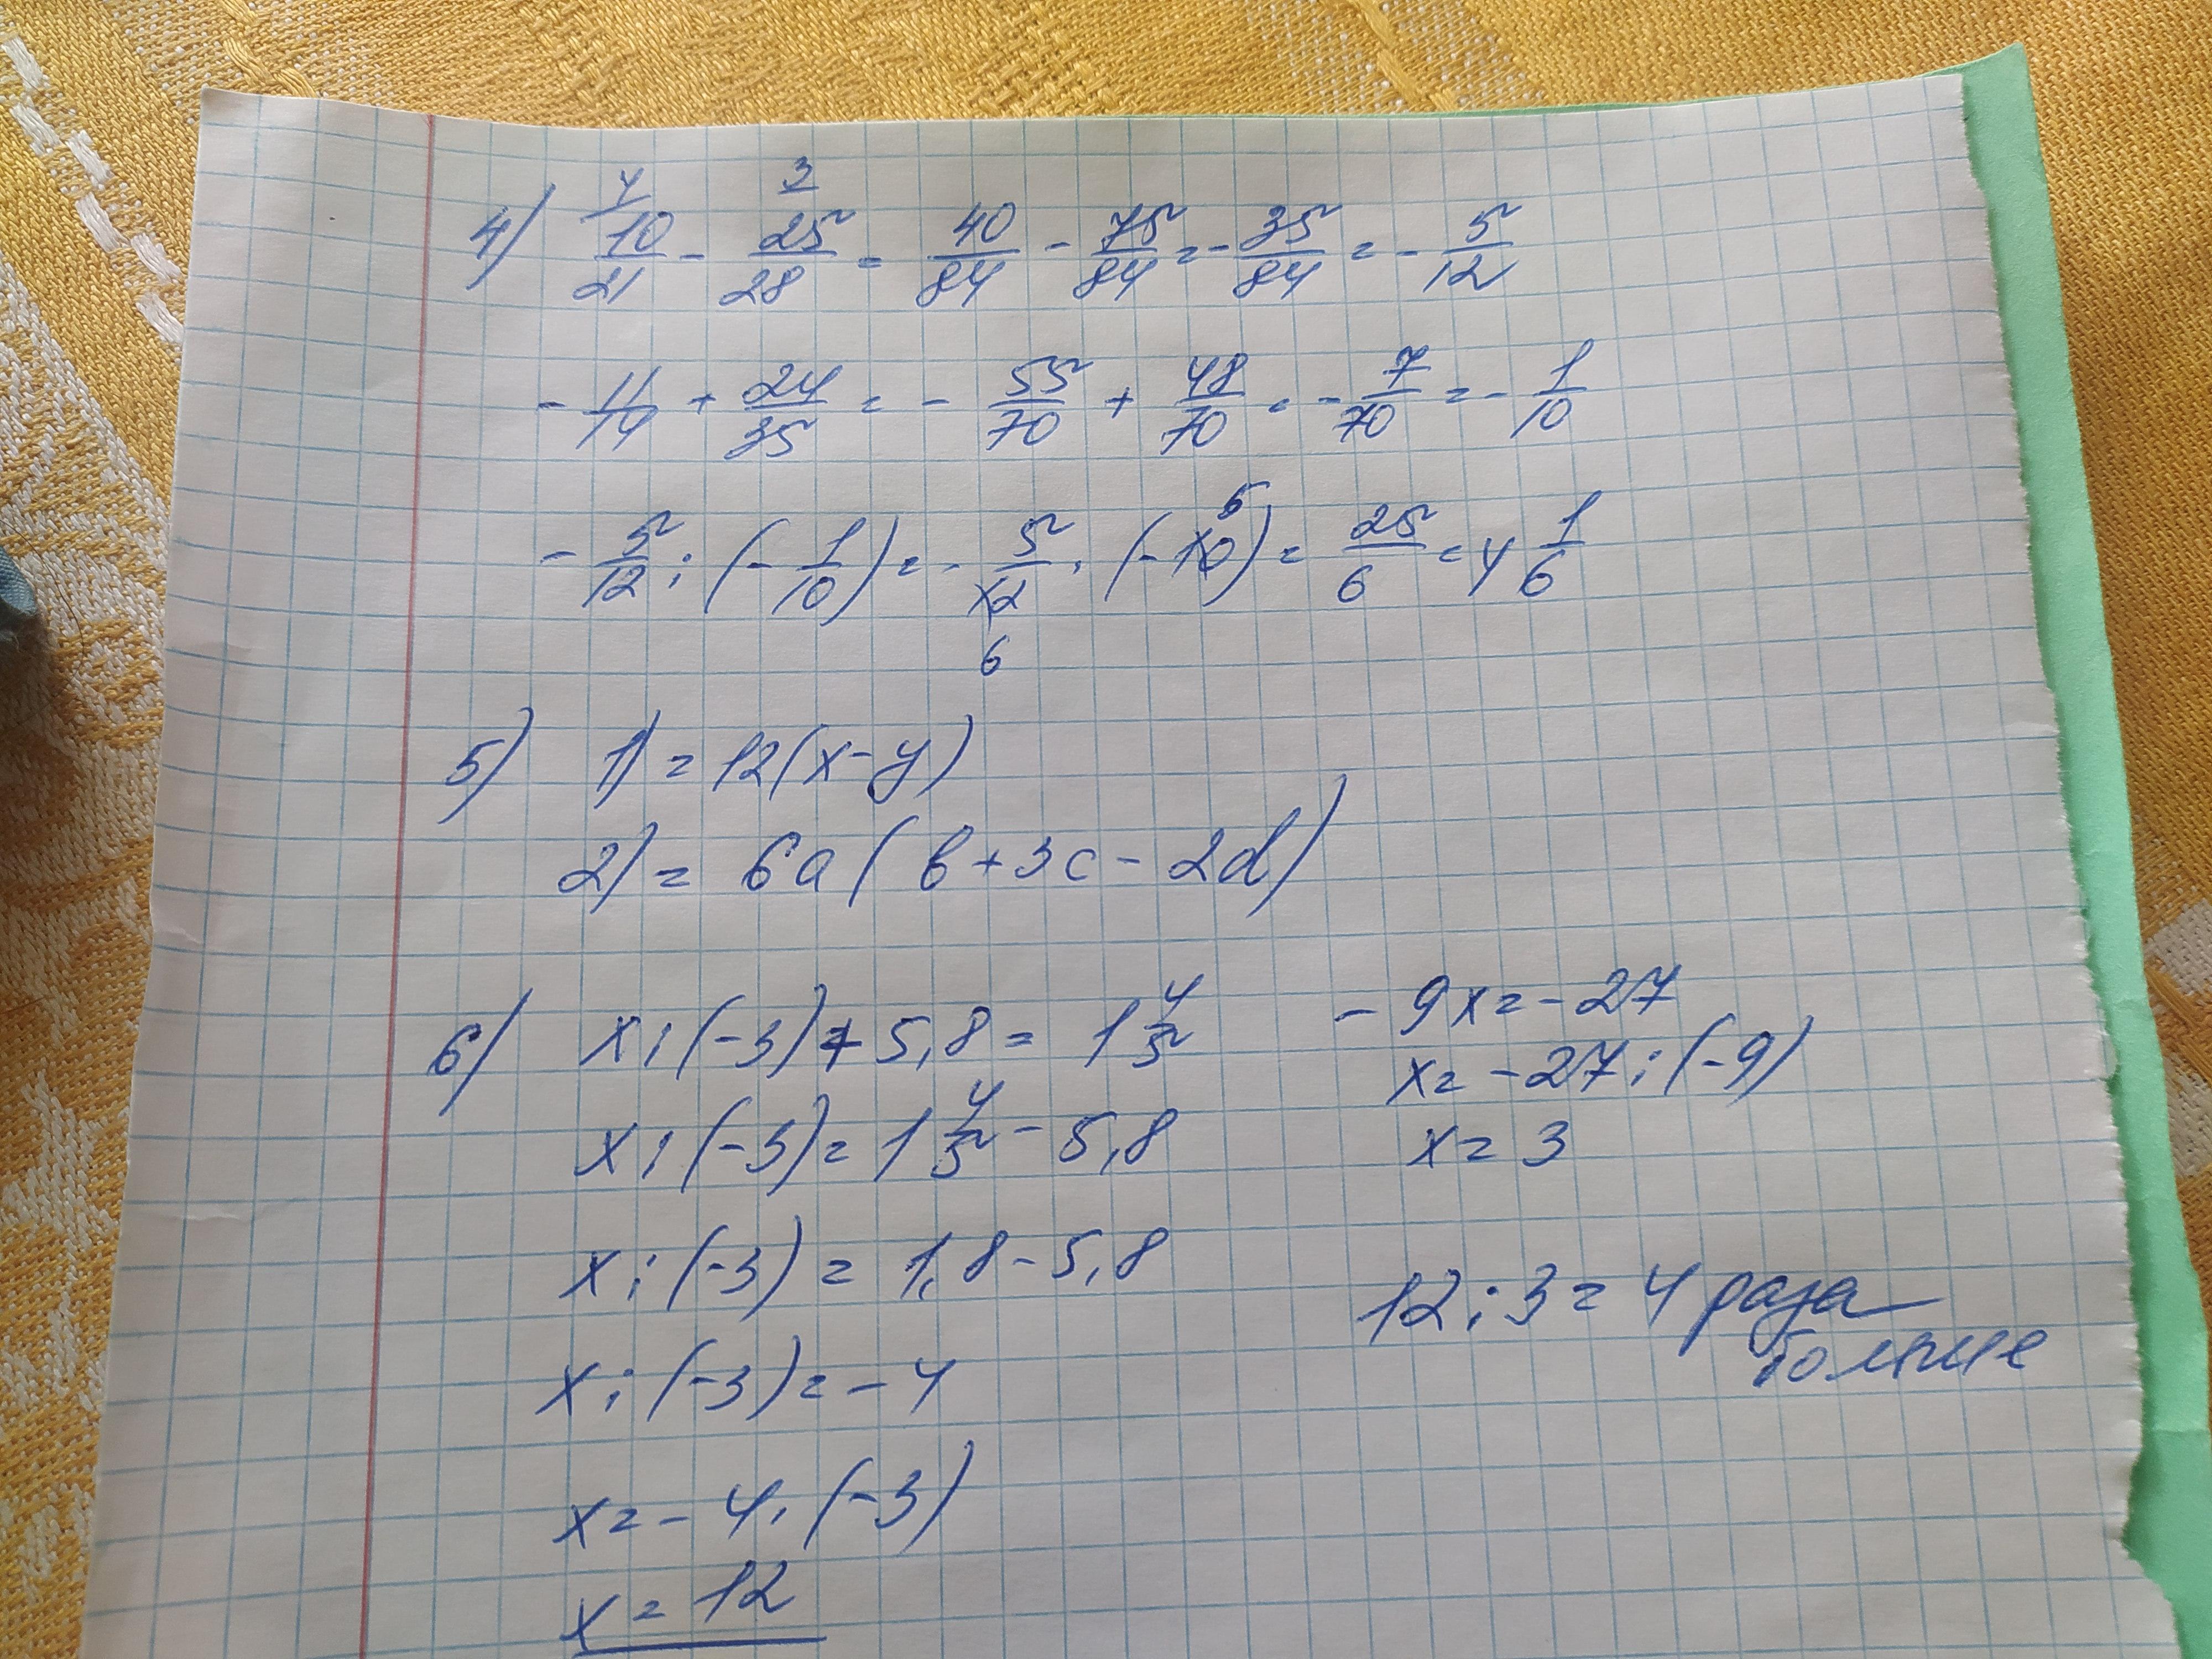 4) 4 3
10/21 - 25/28 = 40/84 - 75/84 = - 35/84 = - 5/12
- 11/14 + 24/35 = - 55/70 + 48/70 = - 7/70 = - 1/10
- 5/12 : (- 1/10) = - 5/12 · (-10) = 25/6 = 4 1/6
5
6
5) 1) = 12(x-y)
2) = 6a(b+3c-2d)
6) x:(-3)+5,8 = 1 4/5
x:(-3) = 1 4/5 - 5,8
x:(-3) = 1,8-5,8
x:(-3) = -4
x = -4·(-3)
x = 12
-9x = -27
x = -27:(-9)
x = 3
12:3 = 4 раза
больше